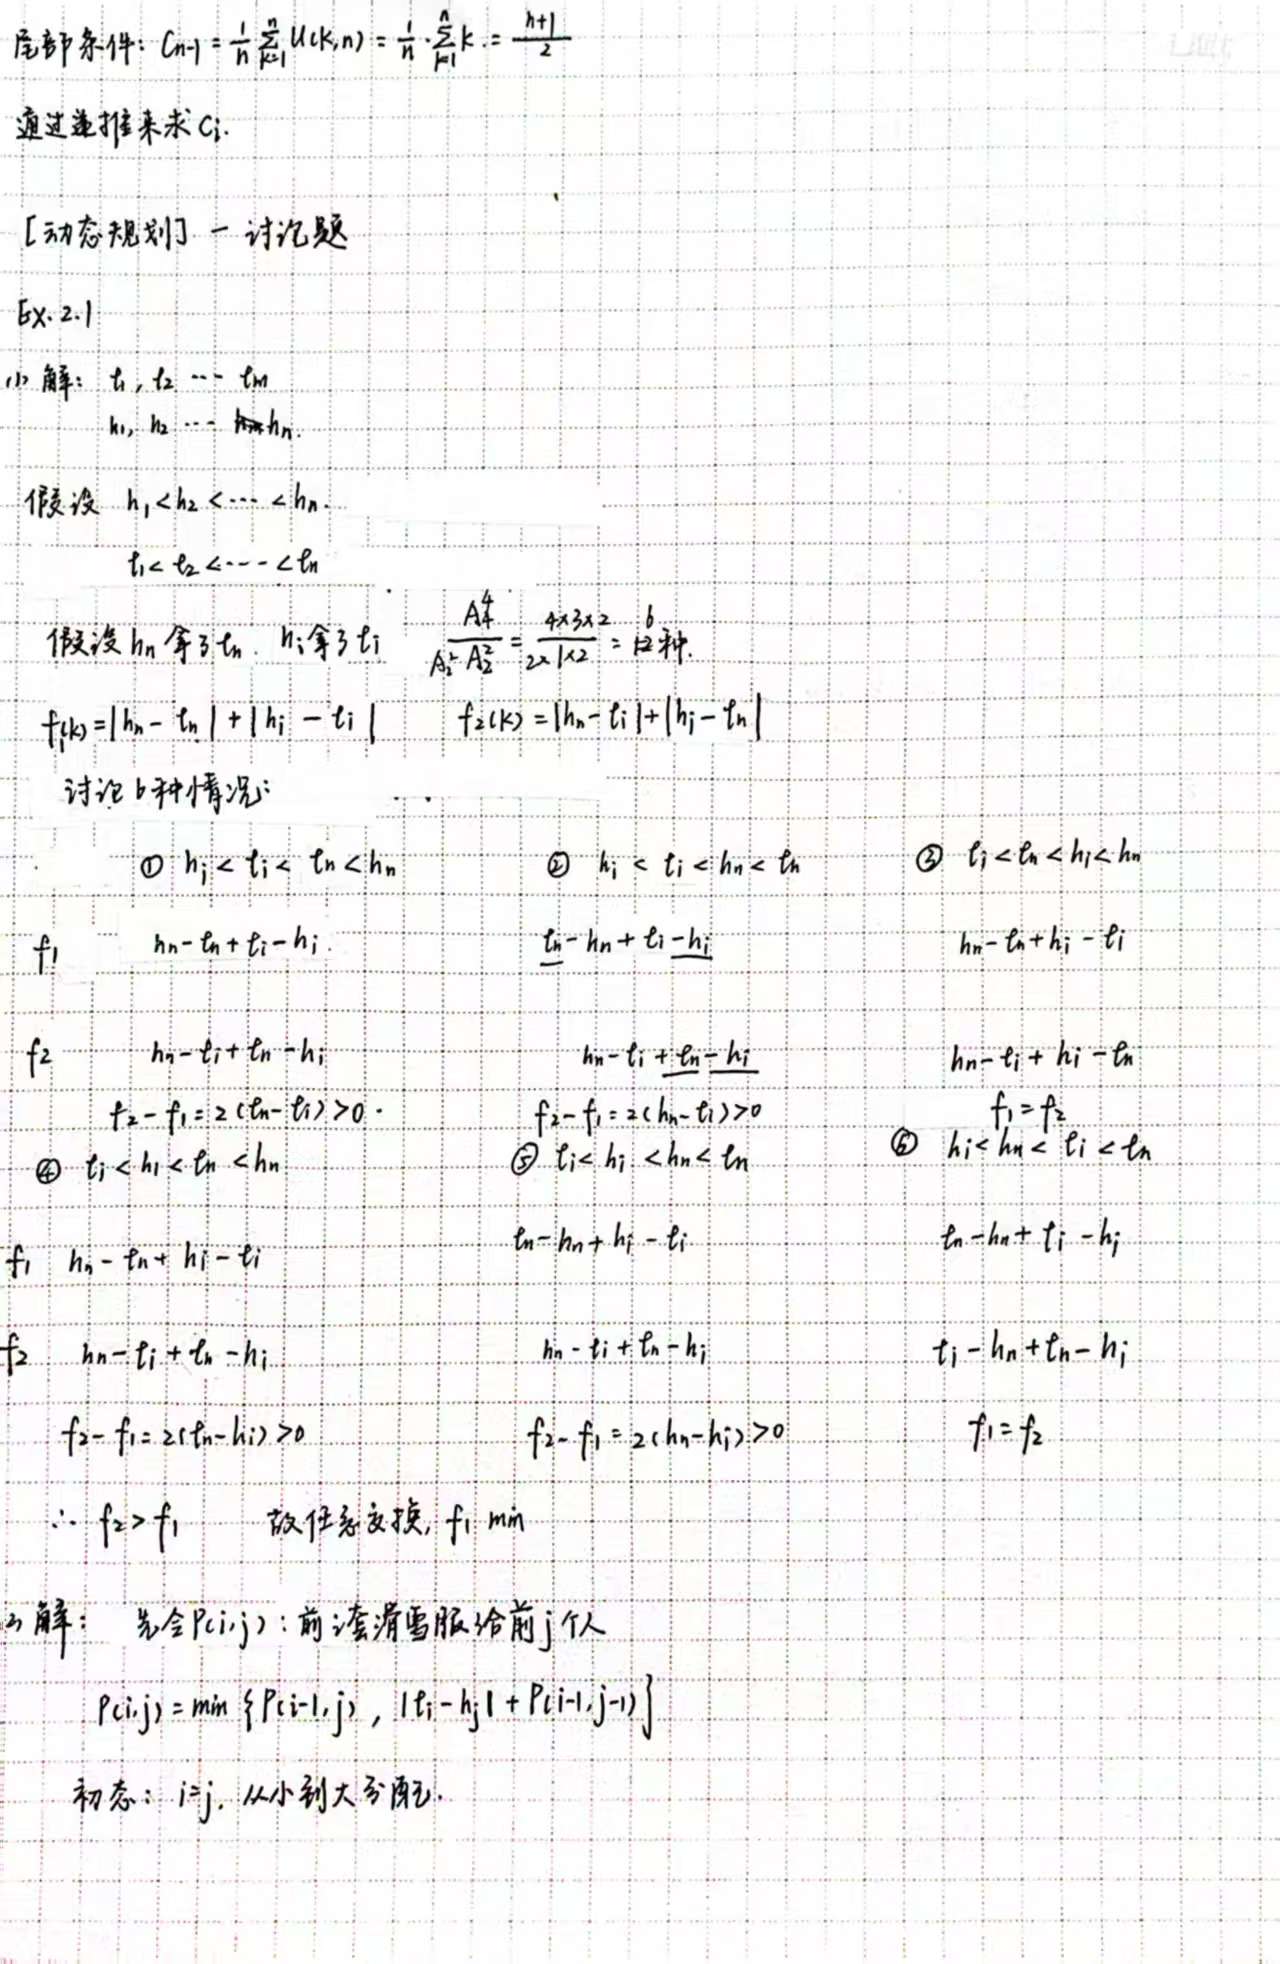 尾部条件: C_{n-1} = \frac{1}{n} \sum_{k=1}^{n} U(k,n) = \frac{1}{n} \cdot \sum_{k=1}^{n} k = \frac{n+1}{2}
通过递推来求 C_i.
[动态规划] - 讨论题
Ex. 2.1
(1) 解: t_1, t_2 ... t_m
h_1, h_2 ... h_n.
假设 h_1 < h_2 < ... < h_n.
t_1 < t_2 < ... < t_n
假设 h_n 拿了 t_n. h_i 拿了 t_i \frac{A_4^4}{A_2^2 A_2^2} = \frac{4×3×2}{2×1×2} = 6 种.
f_1(k) = |h_n - t_n| + |h_i - t_i| f_2(k) = |h_n - t_i| + |h_i - t_n|
讨论 6 种情况:
① h_i < t_i < t_n < h_n ② h_i < t_i < h_n < t_n ③ t_i < t_n < h_i < h_n
f_1 h_n - t_n + t_i - h_i. t_n - h_n + t_i - h_i h_n - t_n + h_i - t_i
f_2 h_n - t_i + t_n - h_i h_n - t_i + t_n - h_i h_n - t_i + h_i - t_n
f_2 - f_1 = 2(t_n - t_i) > 0. f_2 - f_1 = 2(h_n - t_i) > 0 f_1 = f_2
④ t_i < h_i < t_n < h_n ⑤ t_i < h_i < h_n < t_n ⑥ h_i < h_n < t_i < t_n
f_1 h_n - t_n + h_i - t_i t_n - h_n + h_i - t_i t_n - h_n + t_i - h_i
f_2 h_n - t_i + t_n - h_i h_n - t_i + t_n - h_i t_i - h_n + t_n - h_i
f_2 - f_1 = 2(t_n - h_i) > 0 f_2 - f_1 = 2(h_n - h_i) > 0 f_1 = f_2
∴ f_2 > f_1 故任意交换, f_1 min
(2) 解: 先令 P(i,j): 前 i 套滑雪服给前 j 个人
P(i,j) = min {P(i-1,j), |t_i - h_j| + P(i-1,j-1)}
初态: i=j. 从小到大分配.